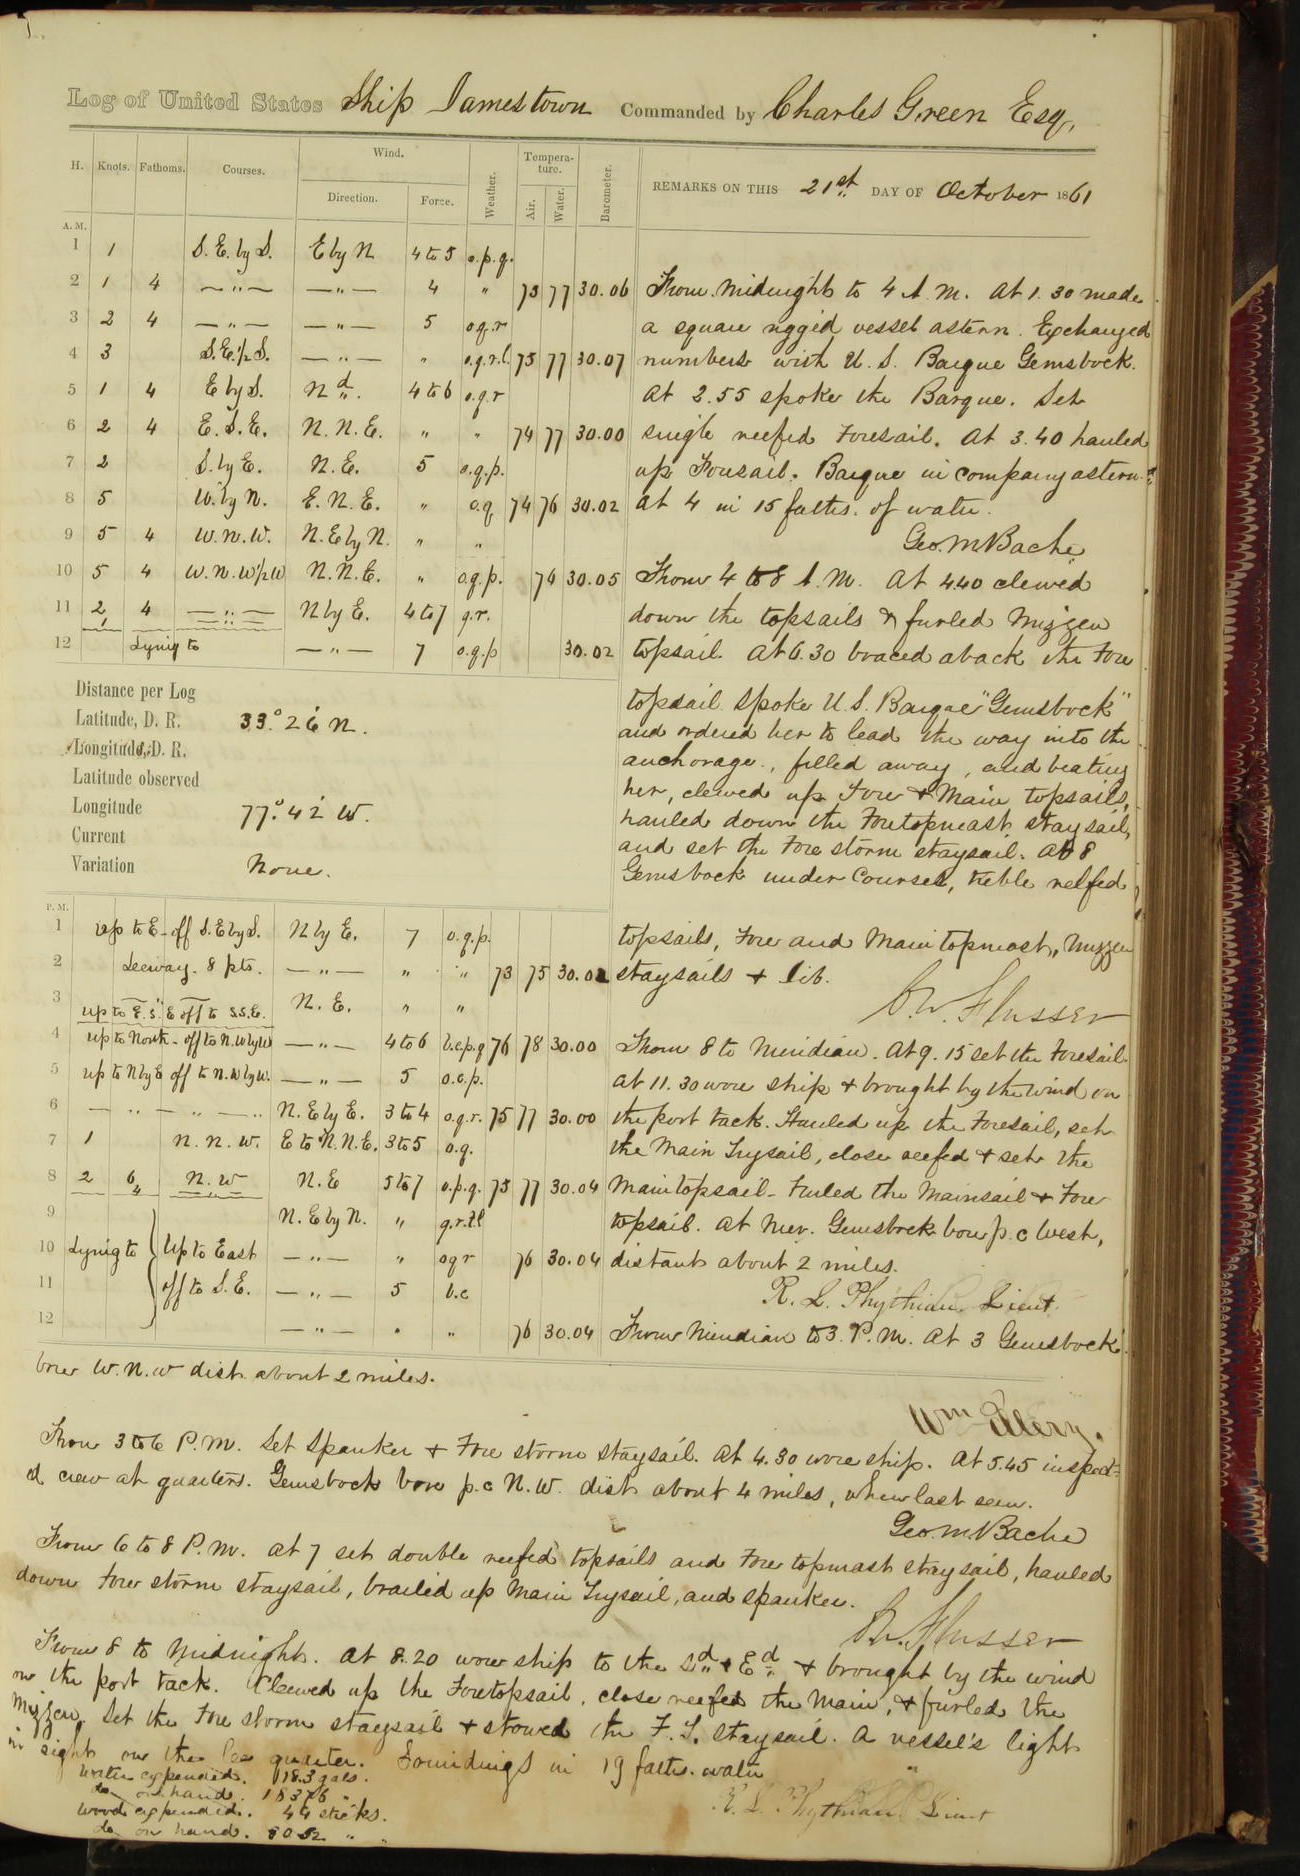 Log of United States Ship Jamestown Commanded by Charles Green Esq,
H. Knots. Fathoms. Courses. Wind. Direction. Force. Weather. Tempera-ture. Air. Water. Barometer. REMARKS ON THIS 21st DAY OF October 1861
A. M.
1 1 S.E. by S. E by N 4 to 5 o.p.q.
2 1 4 — " — — " — 4 " 75 77 30.06 From Midnight to 4 A.M. At 1.30 made
3 2 4 — " — — " — 5 o.q.r a square rigged vessel astern. Exchanged
4 3 S.E.1/2 S. — " — " o.q.r.l 75 77 30.07 numbers with U.S. Barque Gemsbock.
5 1 4 E by S. Nd 4 to 6 o.q.r At 2.55 spoke the Barque. Set
6 2 4 E.S.E. N.N.E. " " 74 77 30.00 single reefed Foresail. At 3.40 hauled
7 2 S. by E. N.E. 5 o.q.p. up Foresail. Barque in company astern.
8 5 W. by N. E.N.E. " o.q 74 76 30.02 At 4 in 15 faths. of water.
9 5 4 W.N.W. N.E by N. " "
Geo. M Bache
10 5 4 W.N.W1/2W N.N.E. " o.q.p. 76 30.05 From 4 to 8 A.M. At 4.40 clewed
11 2 4 — " — N by E. 4 to 7 q.r. down the topsails & furled Mizzen
12 Lying to — " — 7 o.q.p 30.02 topsail. At 6.30 braced aback the Fore
Distance per Log
topsail. Spoke U.S. Barque "Gemsbock"
Latitude, D. R. 33° 26' N.
and ordered her to lead the way into the
Longitude, D. R.
anchorage, filled away, and beating
Latitude observed
her, clewed up Fore & Main topsails,
Longitude 77° 42' W.
hauled down the Foretopmast staysail,
Current
and set the Fore storm staysail. At 8
Variation None.
Gemsbock under Courses, treble reefed
P. M.
1 up to E - off S.E by S. N by E. 7 o.q.p. topsails, Fore and Main topmast, Mizzen
2 Leeway. 8 pts. — " — " " 73 75 30.02 staysails & Jib.
3 up to E.S.E off to S.S.E. N.E. " "
C.W. Flusser
4 up to North - off to N.W by W — " — 4 to 6 b.c.p.q 76 78 30.00 From 8 to Meridian. At 9.15 set the Foresail.
5 up to N by E off to N.W by W. — " — 5 o.c.p. At 11.30 wore ship & brought by the wind on
6 — " — " — " N.E by E. 3 to 4 o.q.r. 75 77 30.00 the port tack. Hauled up the Foresail, set
7 1 N.N.W. E to N.N.E. 3 to 5 o.q. the Main Trysail, close reefed & set the
8 2 6 N.W N.E 5 to 7 o.p.q. 75 77 30.04 Maintopsail - Furled the Mainsail & Fore
9 N.E by N. " topsail. At Mer. Gemsbock bore p.c West,
10 Lying to Up to East — " — " o q r 76 30.04 distant about 2 miles.
11 off to S.E. — " — 5 b.c
R. L. Phythian Lieut.
12 — " — " " 76 30.04 From Meridian to 3 P.M. At 3 Gemsbock
bore W.N.W dist. about 2 miles.
From 3 to 6 P.M. Set Spanker & Fore storm staysail. At 4.30 wore ship. At 5.45 inspect=
ed crew at quarters. Gemsbock bore p.c N.W. dist about 4 miles, when last seen.
Geo. M Bache
From 6 to 8 P.M. At 7 set double reefed topsails and Fore topmast staysail, hauled
down Fore storm staysail, brailed up Main Trysail, and spanker.
C.W. Flusser
From 8 to Midnight. At 8.20 wore ship to the Sd & Ed & brought by the wind
on the port tack. Clewed up the Foretopsail, close reefed the Main, & furled the
Mizzen. Set the Fore storm staysail & stowed the F.T. staysail. A vessel's light
in sight on the lee quarter. Soundings in 19 faths. water
Water expended. 183 gals.
do on hand. 18376 "
Wood expended. 44 sticks.
do on hand. 8052 " "
R. L. Phythian Lieut